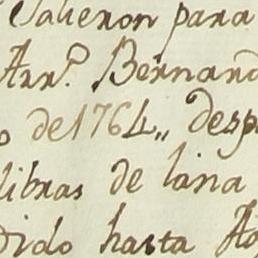 Salieron para
Arr.º Bernard
de 1764,, desp
libras de lana
dido hasta Ag